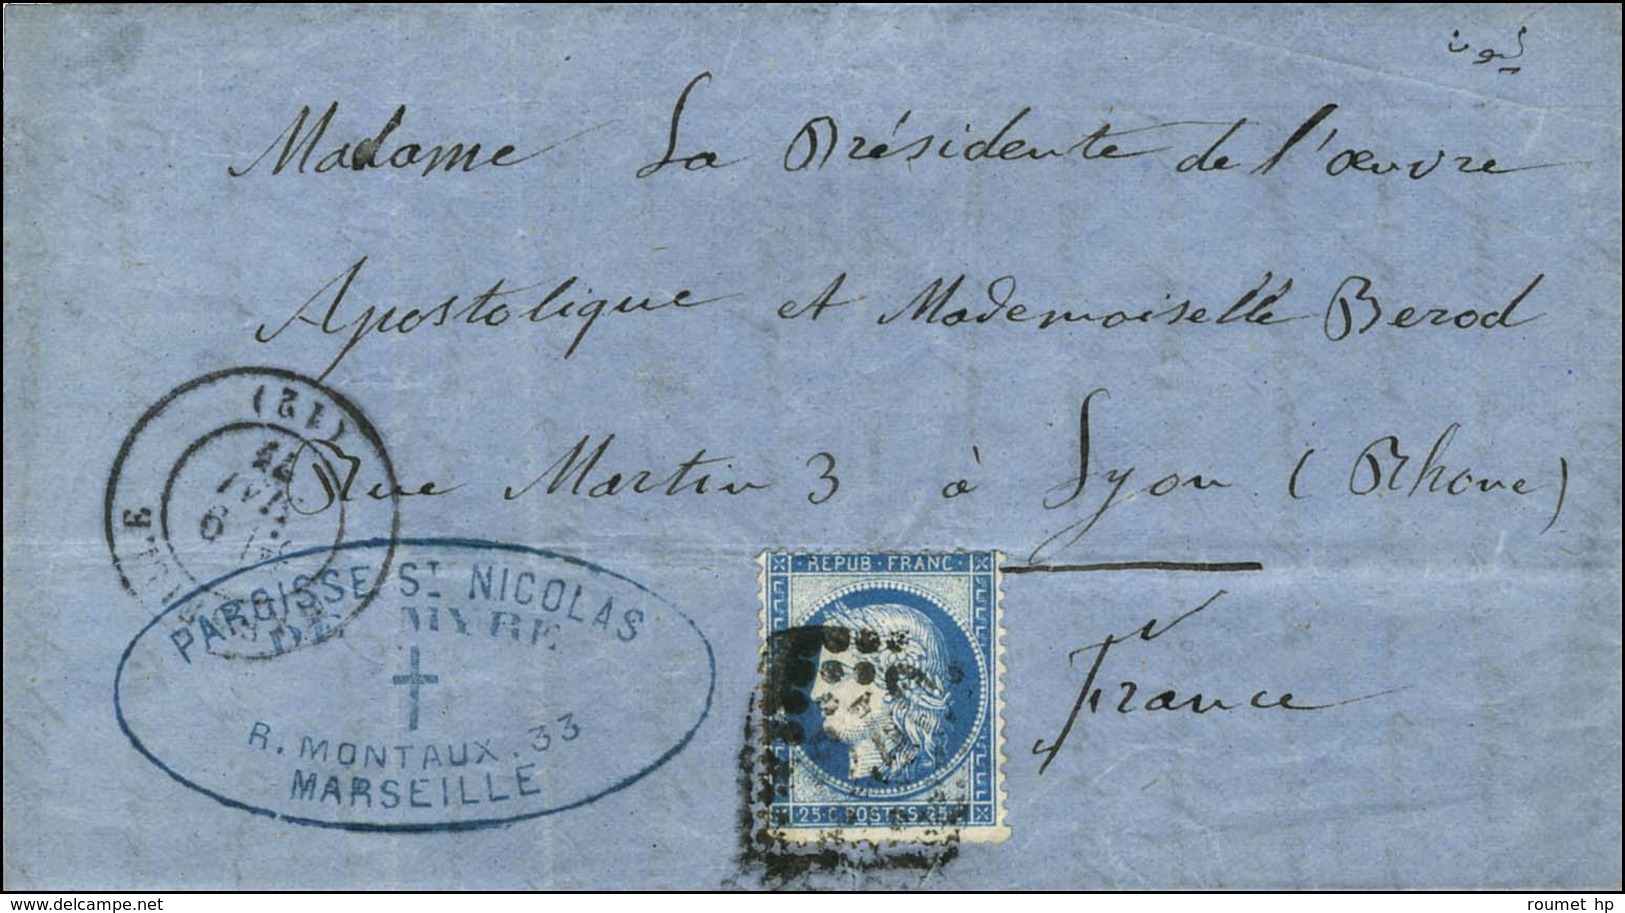 Madame La Présidente de l'œuvre
Apostolique et Mademoiselle Berod
Rue Martin 3 à Lyon (Rhone)
France
(12)
PAROISSE ST NICOLAS
DE MYRE
R. MONTAUX. 33
MARSEILLE
REPUB·FRANC·
25·C·POSTES·25
delcampe.net
roumet hp